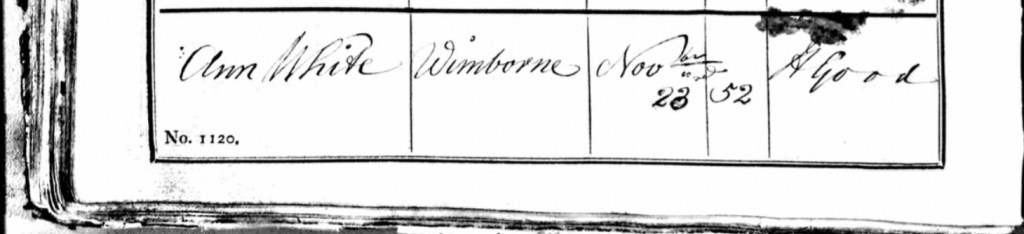 Ann White Wimborne Nov 52 A Good
23
No. 1120.